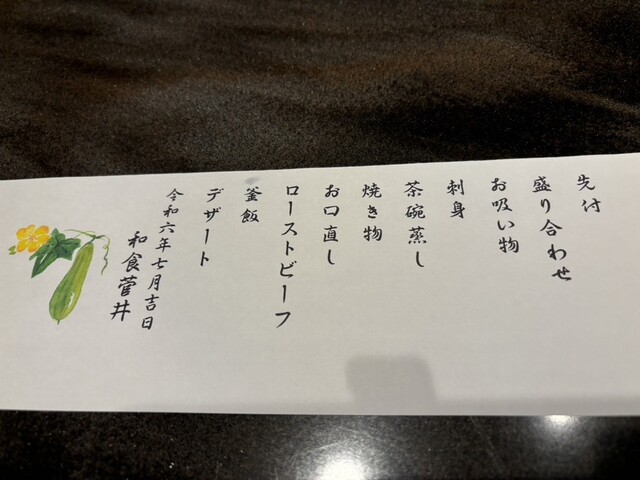 先付
盛り合わせ
お吸い物
刺身
茶碗蒸し
焼き物
お口直し
ローストビーフ
釜飯
デザート
令和六年七月吉日
和食菅井